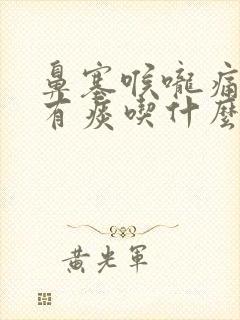 鼻塞喉嚨痛
有痰喫什麼
黃光軍